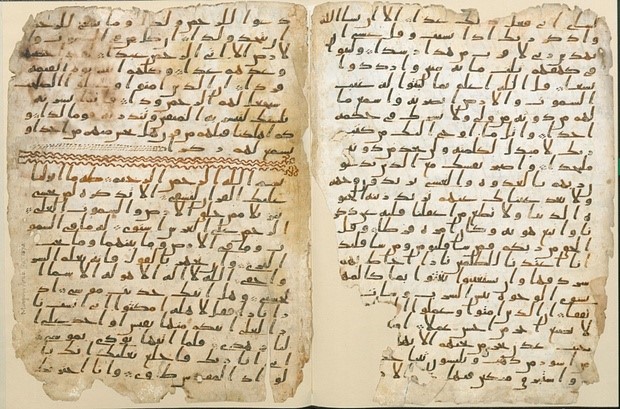 لشاى انى فعل ذلك غدا الا ان يشا الله
واذكر ربك اذا نسيت وقل عسى ا
ن يهدين ربى لاقرب من هذا رشدا ولبثوا
فى كهفهم ثلث مائه سنين وازدادوا
تسعا قل الله اعلم بما لبثوا له غيب
السموت والارض ابصر به واسمع ما
لهم من دونه من ولى ولا يشرك فى حكمه
احدا واتل ما اوحى اليك من كتب
ربك لا مبدل لكلمته ولن تجد من دونه
ملتحدا واصبر نفسك مع الذين يدعو
ن ربهم بالغدوه والعشى يريدون وجهه
ولا تعد عينك عنهم تريد زينه الحيو
ه الدنيا ولا تطع من اغفلنا قلبه عن ذكر
نا واتبع هويه وكان امره فرطا وقل
الحق من ربكم فمن شا فليومن ومن شا فليكفر
انا اعتدنا للظلمين نارا احاط بهم
سردقها وان يستغيثوا يغثوا بما كالمهل
يشوى الوجوه بئس الشراب وسات مر
تفقا ان الذين امنوا وعملوا ا
لا نضيع اجر من احسن عملا
جنت عدن تجرى من تحتهم الانهر
من اسور من ذهب ويلبسون ثيابا
واستبرق متكين فيها الا
دعوا للرحمن ولدا وما ينبغى للر
حمن ان يتخذ ولدا ان كل من فى السموت وا
لارض الا اتى الرحمن عبدا لقد احصيهم
وعدهم عدا وكلهم اتيه يوم القيمه
فردا ان الذين امنوا وعملوا الصلحت
سيجعل لهم الرحمن ودا فانما يسرنه
بلسنك لتبشر به المتقين وتنذر به قوما لدا و
كم اهلكنا قبلهم من قرن هل تحس منهم من احد او
تسمع لهم ركزا
بسم الله الرحمن الرحيم طه ما انزلنا
عليك القرن لتشقى الا تذكره لمن يخشى
تنزيلا ممن خلق الارض والسموت العلى
الرحمن على العرش استوى له ما فى السمو
ت وما فى الارض وما بينهما وما تحت
الثرى وان تجهر بالقول فانه يعلم السر
واخفى الله لا اله الا هو له الاسما
الحسنى وهل اتيك حديث موسى اذ
را نارا فقال لاهله امكثوا انى انست نا
را لعلى اتيكم منها بقبس او اجد على ا
لنار هدى فلما اتيها نودى يموسى
انى انا ربك فاخلع نعليك انك با
لواد المقدس طوى وانا اخترتك